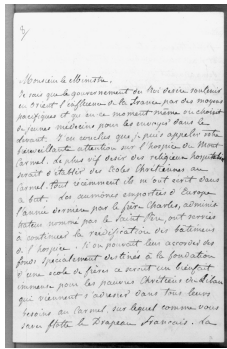 2/
Monsieur le Ministre.
Je sais que le gouvernement du Roi désire soutenir
en Orient l'influence de la France par des moyens
pacifiques et qu'en ce moment même on choisit
de jeunes médecins pour les envoyer dans le
Levant. J'en conclus que je puis appeler votre
bienveillante attention sur l'hospice du Mont-
Carmel. Le plus vif désir des religieux hospitaliers
serait d'établir des Ecoles Chrétiennes au
Carmel, tout récemment ils m'ont écrit dans
ce but. Les aumônes emportées d'Europe
l'année dernière par le frère Charles, adminis
trateur nommé par le Saint Père, ont servies
à continuer la réédification des bâtiments
de l'hospice. Si on pouvait leur accorder des
fonds spécialement destinés à la fondation
d'une école de frères ce serait un bienfait
immense pour les pauvres Chrétiens
qui viennent s'adresser dans tous leurs
besoins au Carmel, sur lequel comme vous
savez flotte le Drapeau Français. La